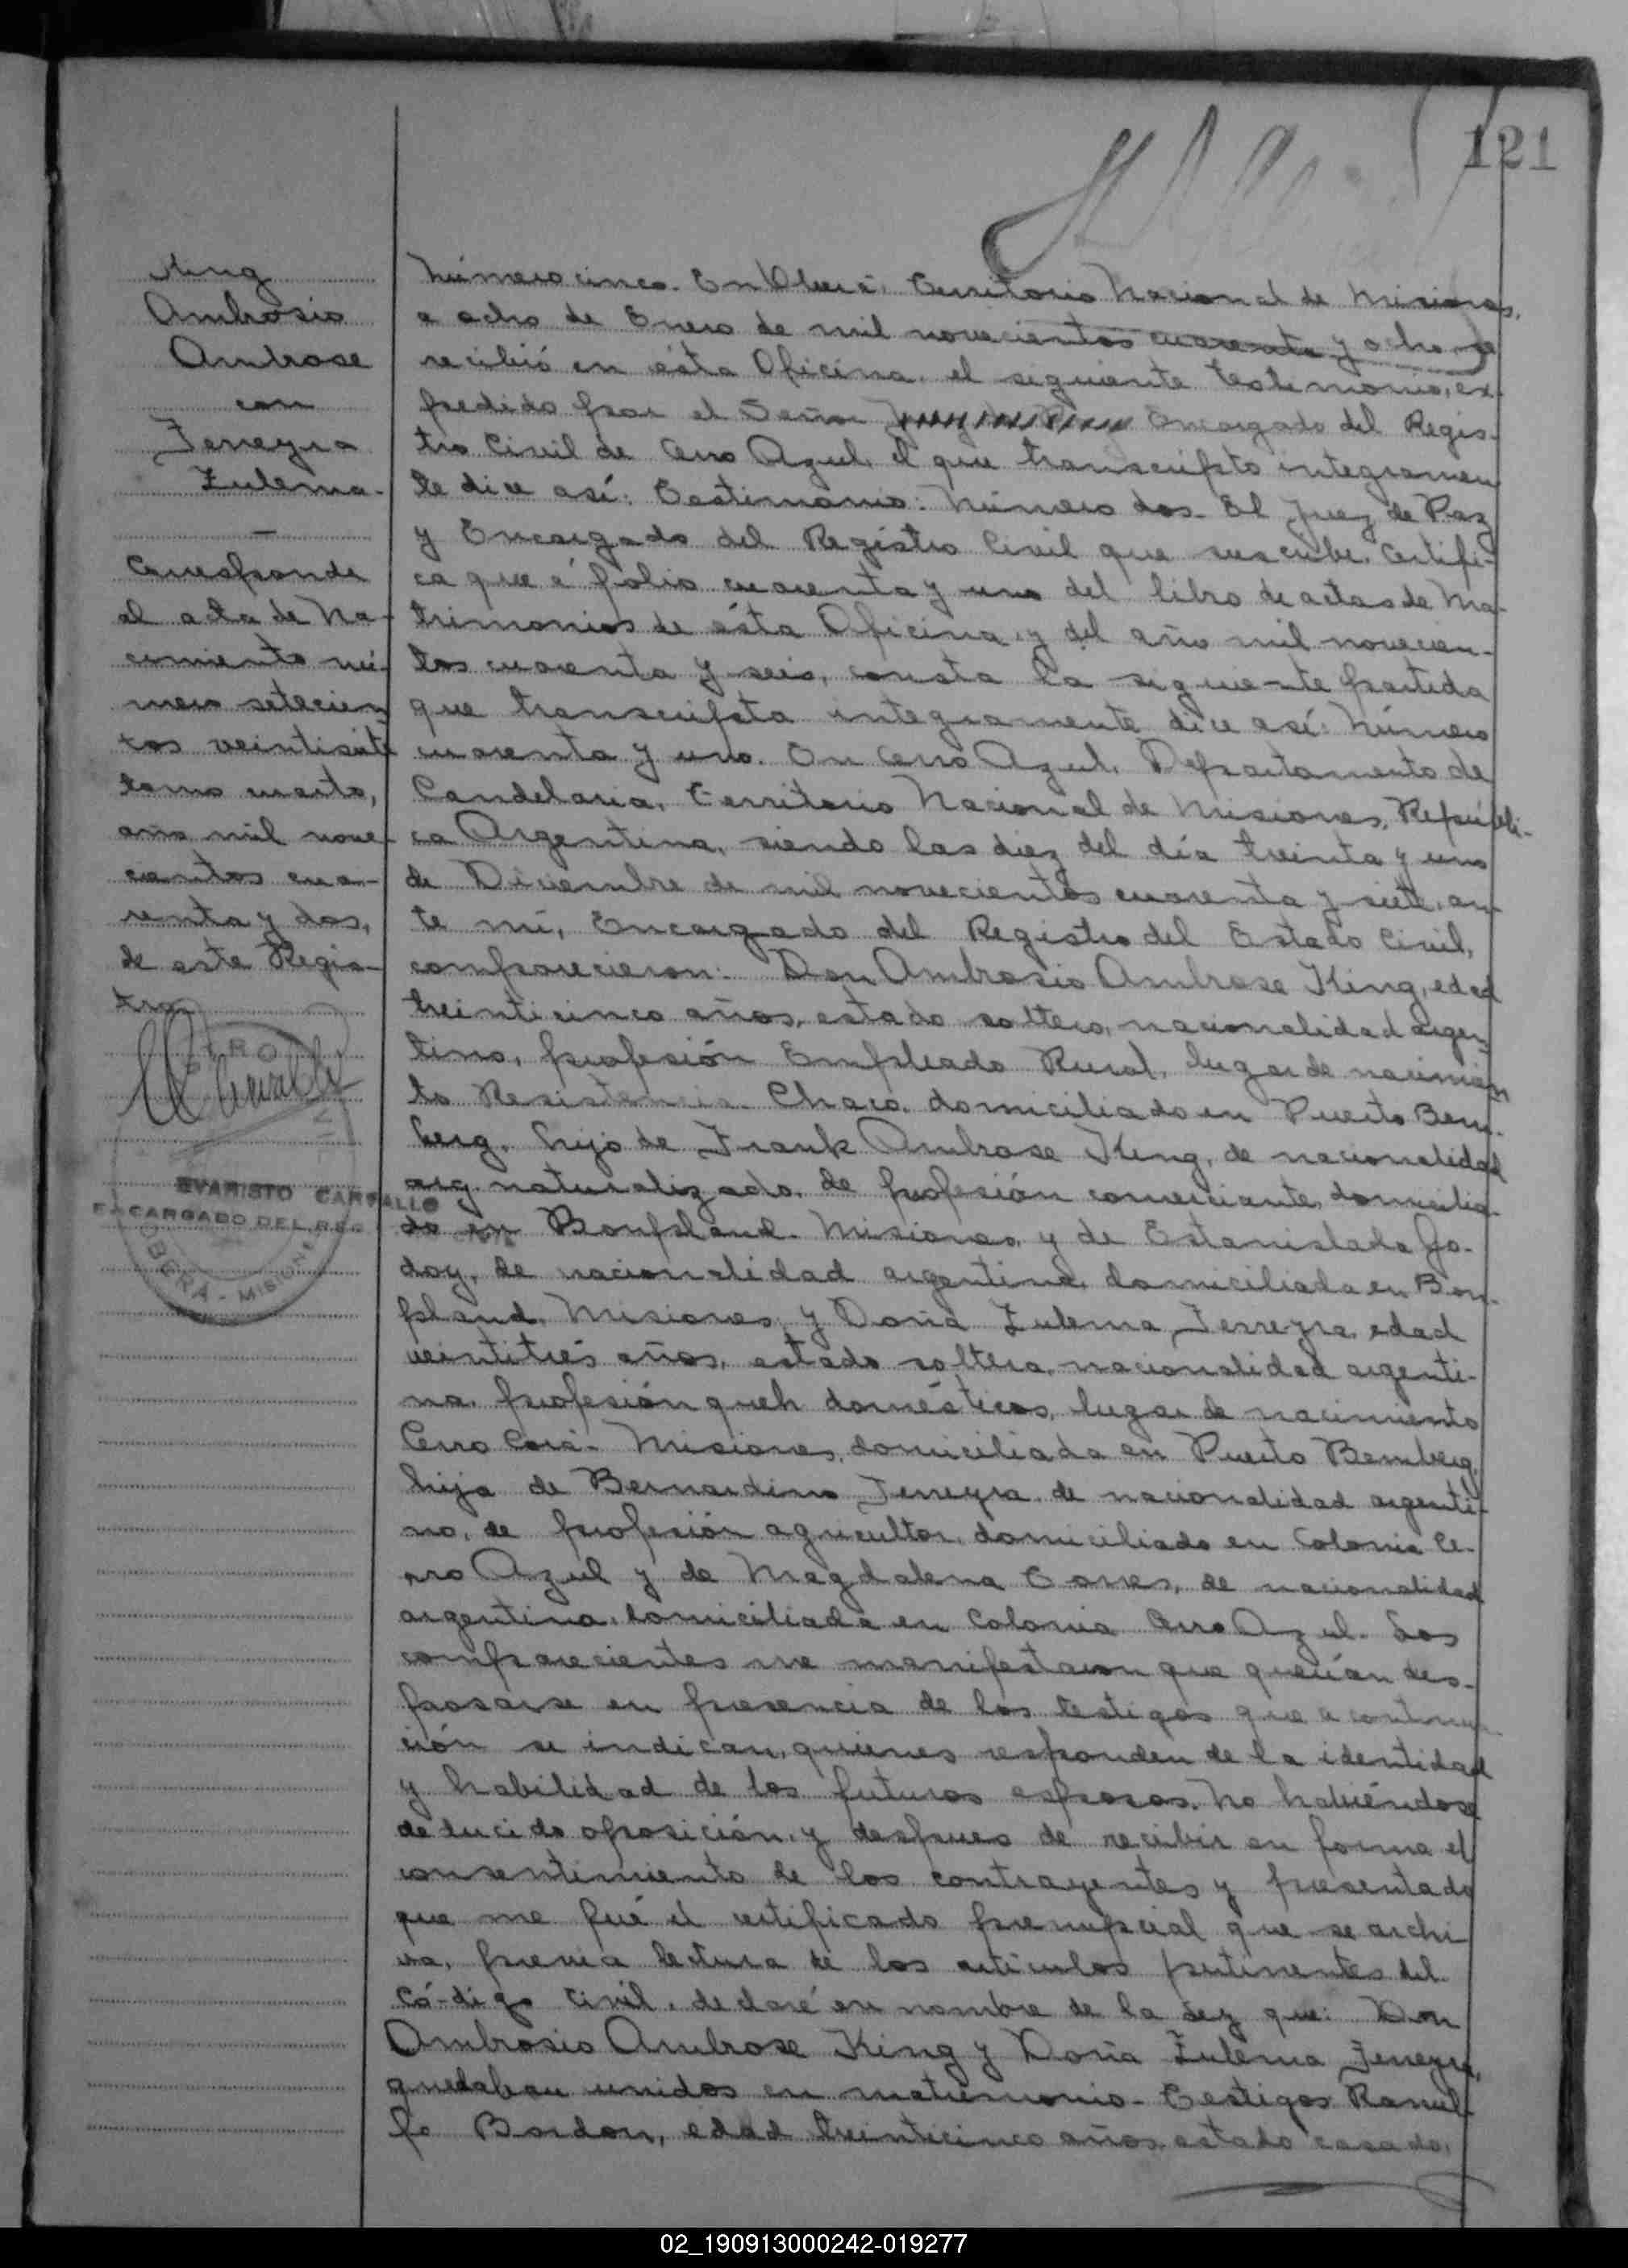 121
King
Ambrosio
Ambrose
con
Ferreyra
Zulema.
—
Corresponde
al acta de Na-
cimiento nú-
mero setecien
tos veintisiete
tomo cuarto,
año mil nove-
cientos cua-
renta y dos,
de este Regis-
tro.
EVARISTO CARVALLO
ENCARGADO DEL REG
OBERÁ - MISIONES
Número cinco. En Oberá, Territorio Nacional de Misiones,
a ocho de Enero de mil novecientos cuarenta y ocho se
recibió en ésta Oficina, el siguiente testimonio, ex-
pedido por el Señor Encargado del Regis-
tro Civil de Cerro Azul, el que transcripto integramen
te dice así: Testimonio: Número dos. El Juez de Paz
y Encargado del Registro Civil que suscribe, Certifi-
ca que á folio cuarenta y uno del libro de actas de Ma-
trimonios de ésta Oficina y del año mil novecien-
tos cuarenta y seis, consta la siguiente partida
que transcripta integramente dice así: Número
cuarenta y uno. En Cerro Azul, Departamento de
Candelaria, Territorio Nacional de Misiones, Repúbli-
ca Argentina, siendo las diez del día treinta y uno
de Diciembre de mil novecientos cuarenta y siete, an-
te mí, Encargado del Registro del Estado Civil,
comparecieron: Don Ambrosio Ambrose King, edad
treinticinco años, estado soltero, nacionalidad argen
tino, profesión Empleado Rural, lugar de nacimien
to Resistencia. Chaco, domiciliado en Puerto Bem-
berg, hijo de Frank Ambrose King, de nacionalidad
arg. naturalizado, de profesión comerciante, domicilia-
do en Bonpland. Misiones, y de Estanislada Go-
doy, de nacionalidad argentina, domiciliada en Bon-
pland, Misiones, y Doña Zulema Ferreyra, edad
veintitrés años, estado soltera, nacionalidad argenti-
na, profesión queh domésticos, lugar de nacimiento
Cerro Corá - Misiones, domiciliada en Puerto Bemberg,
hija de Bernardino Ferreyra, de nacionalidad argenti-
no, de profesión agricultor, domiciliado en Colonia Ce-
rro Azul y de Magdalena Torres, de nacionalidad
argentina, domiciliada en Colonia Cerro Azul. Los
comparecientes me manifestaron que querían des-
posarse en presencia de los testigos que a continua-
ción se indican, quienes responden de la identidad
y habilidad de los futuros esposos. No habiéndose
deducido oposición, y despues de recibir en forma el
consentimiento de los contrayentes y presentado
que me fué el certificado prenupcial que se archi
va, previa lectura de los artículos pertinentes del
Có-digo Civil, declaré en nombre de la Ley que: Don
Ambrosio Ambrose King y Doña Zulema Ferreyra,
quedaban unidos en matrimonio. Testigos Ranul-
fo Bordon, edad treinticinco años, estado casado,
02_190913000242-019277